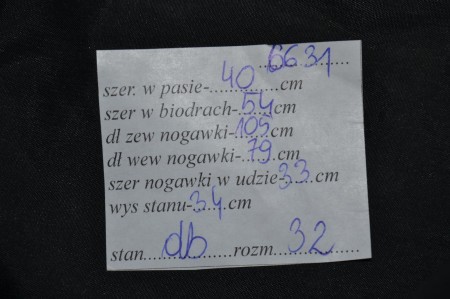 6631
szer. w pasie-40cm
szer w biodrach-54cm
dł zew nogawki-105cm
dł wew nogawki-79cm
szer nogawki w udzie-33cm
wys stanu-34cm
stan db rozm. 32